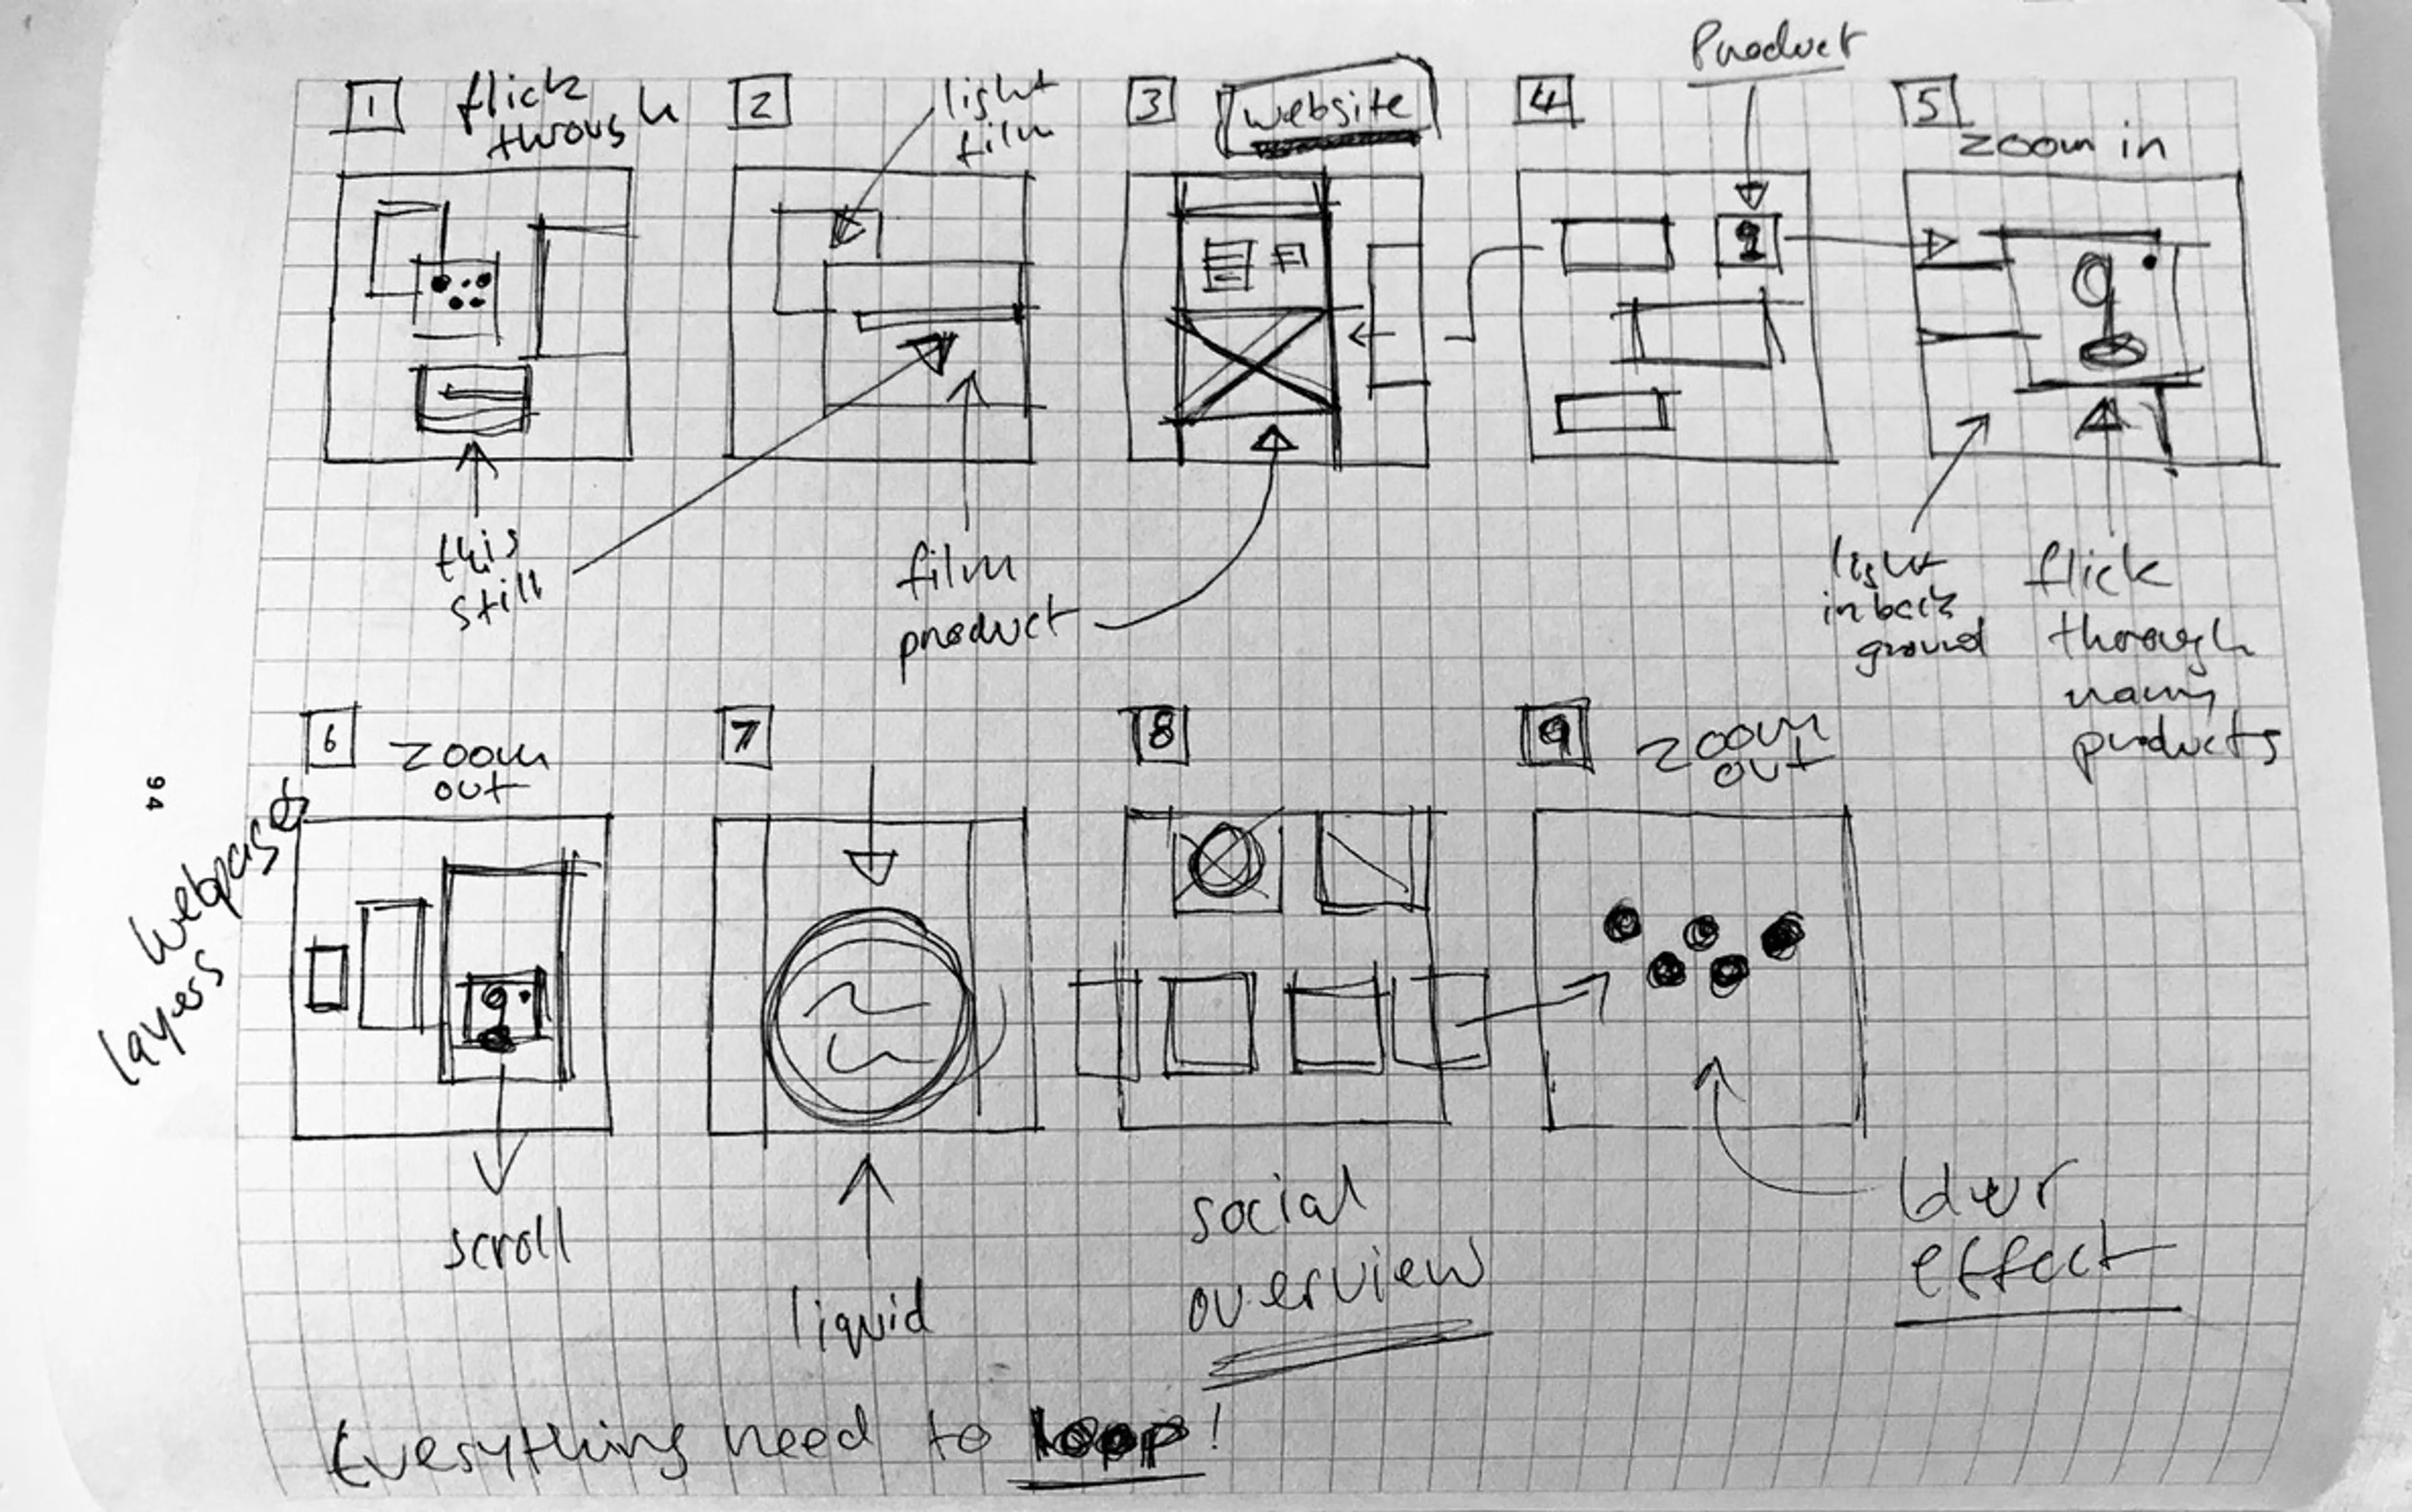 1
flick
through
2
light
film
3
website
Product
4
5
zoom in
this
still
film
product
light
in back
ground
flick
through
many
products
6
zoom
out
Webpages
layers
scroll
7
liquid
8
social
overview
9
zoom
out
blur
effect
94
Everything need to loop!